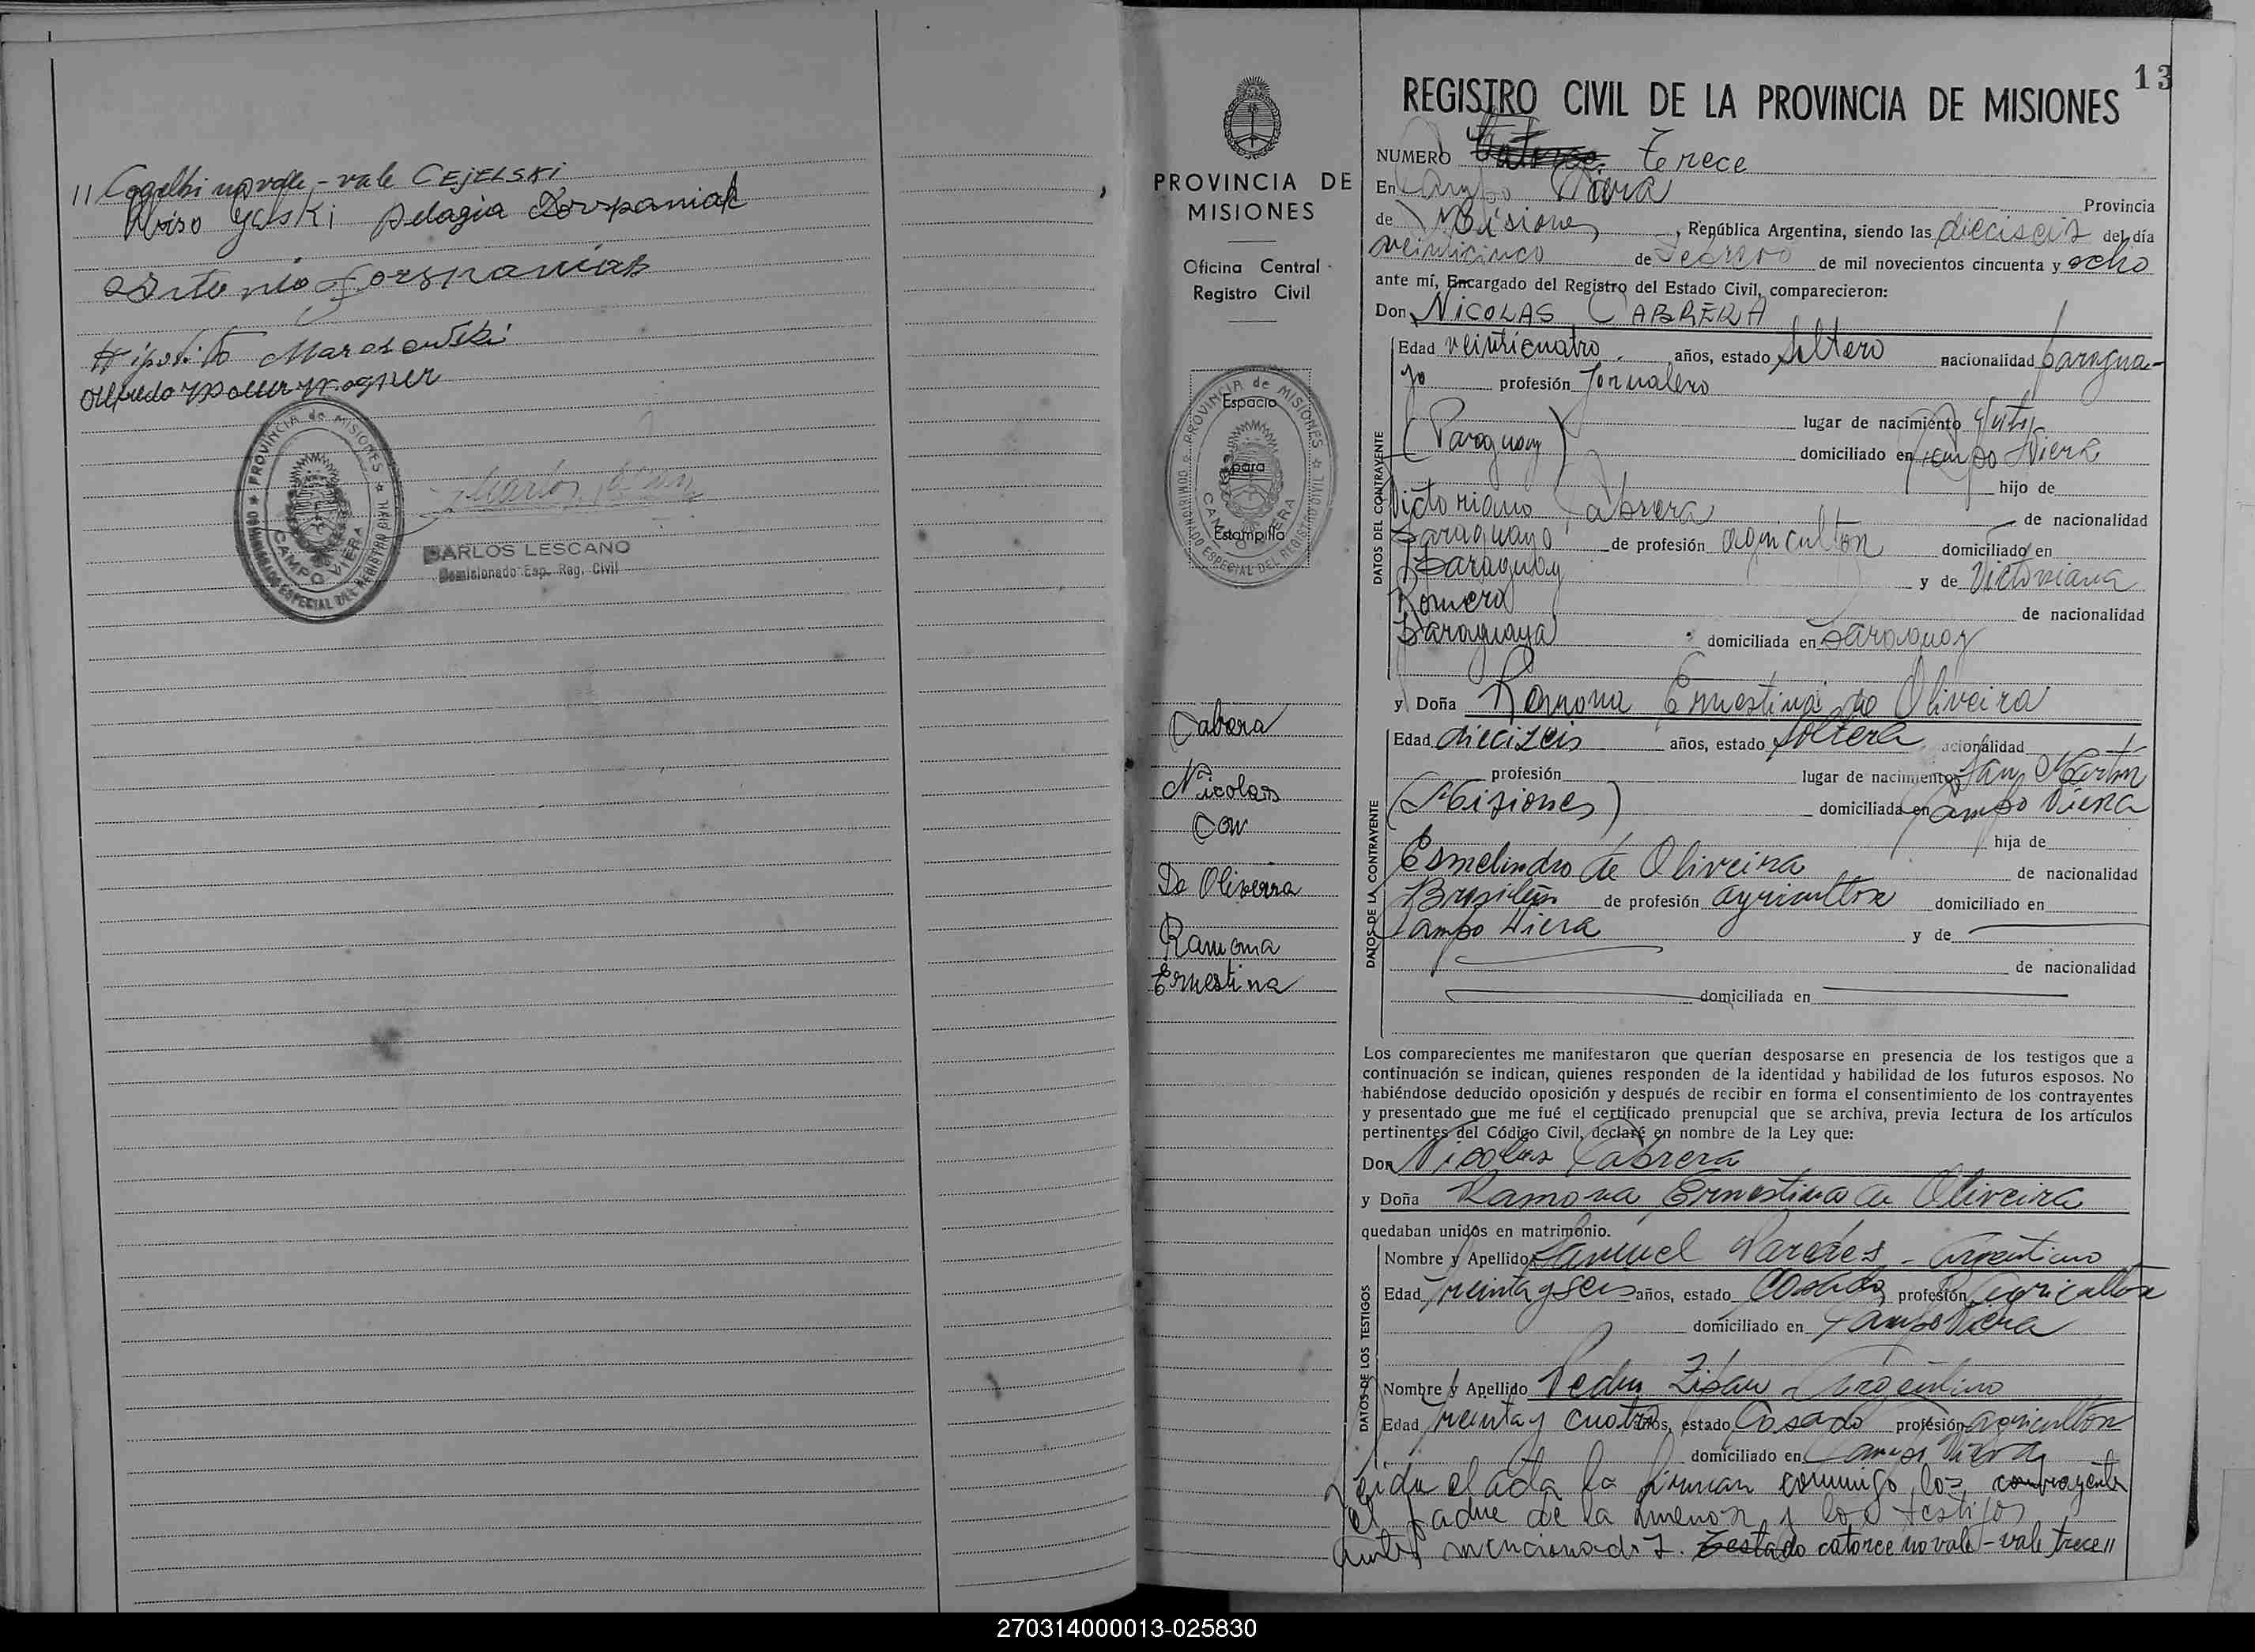 " Cogelbi no vale - vale CEJELSKI
Pelagia
Antonio
Hipolito
Alfredo
PROVINCIA de MISIONES
CAMPO VIERA
COMISIONADO ESPECIAL DEL REGISTRO CIVIL
CARLOS LESCANO
Comisionado Esp. Reg. Civil
PROVINCIA DE
MISIONES
Oficina Central -
Registro Civil
PROVINCIA de MISIONES
Espacio
para
Estampilla
CAMPO VIERA
COMISIONADO ESPECIAL DEL REGISTRO CIVIL
Cabera
Nicolas
Con
De Oliverra
Ramona
Ernestina
13
REGISTRO CIVIL DE LA PROVINCIA DE MISIONES
NUMERO Catorce Terece
En Campo Viera Provincia
de Misiones, República Argentina, siendo las dieciseis del día
veinticinco de Febrero de mil novecientos cincuenta y ocho
ante mí, Encargado del Registro del Estado Civil, comparecieron:
Don NICOLAS CABRERA
Edad veinticuatro años, estado soltero nacionalidad paragua-
yo profesión Jornalero
lugar de nacimiento Yuty
(Paraguay) domiciliado en Campo Viera
hijo de
Victoriano Cabrera de nacionalidad
Paraguayo de profesión agricultor domiciliado en
Paraguay y de Victoriana
Romero de nacionalidad
Paraguaya domiciliada en Paraguay
DATOS DEL CONTRAYENTE
y Doña Ramona Ernestina de Oliveira
Edad dieciseis años, estado soltera nacionalidad
profesión lugar de nacimiento San Martin
(Misiones) domiciliada en Campo Viera
hija de
Esmelindro de Oliveira de nacionalidad
Brasileño de profesión agricultor domiciliado en
Campo Viera y de
de nacionalidad
domiciliada en
DATOS DE LA CONTRAYENTE
Los comparecientes me manifestaron que querían desposarse en presencia de los testigos que a
continuación se indican, quienes responden de la identidad y habilidad de los futuros esposos. No
habiéndose deducido oposición y después de recibir en forma el consentimiento de los contrayentes
y presentado que me fué el certificado prenupcial que se archiva, previa lectura de los artículos
pertinentes del Código Civil, declaré en nombre de la Ley que:
Don Nicolas Cabrera
y Doña Ramona Ernestina de Oliveira
quedaban unidos en matrimonio.
Nombre y Apellido Samuel Paredes - Argentino
Edad treinta y seis años, estado Casado profesión agricultor
domiciliado en Campo Viera
Nombre y Apellido Pedro Argentino
Edad treinta y cuatro años, estado Casado profesión agricultor
domiciliado en Campo Viera
DATOS DE LOS TESTIGOS
Leida el acta la firman conmigo los contrayentes
el padre de la menor y los testigos
antes mencionados. Testado catorce no vale - vale trece "
270314000013-025830